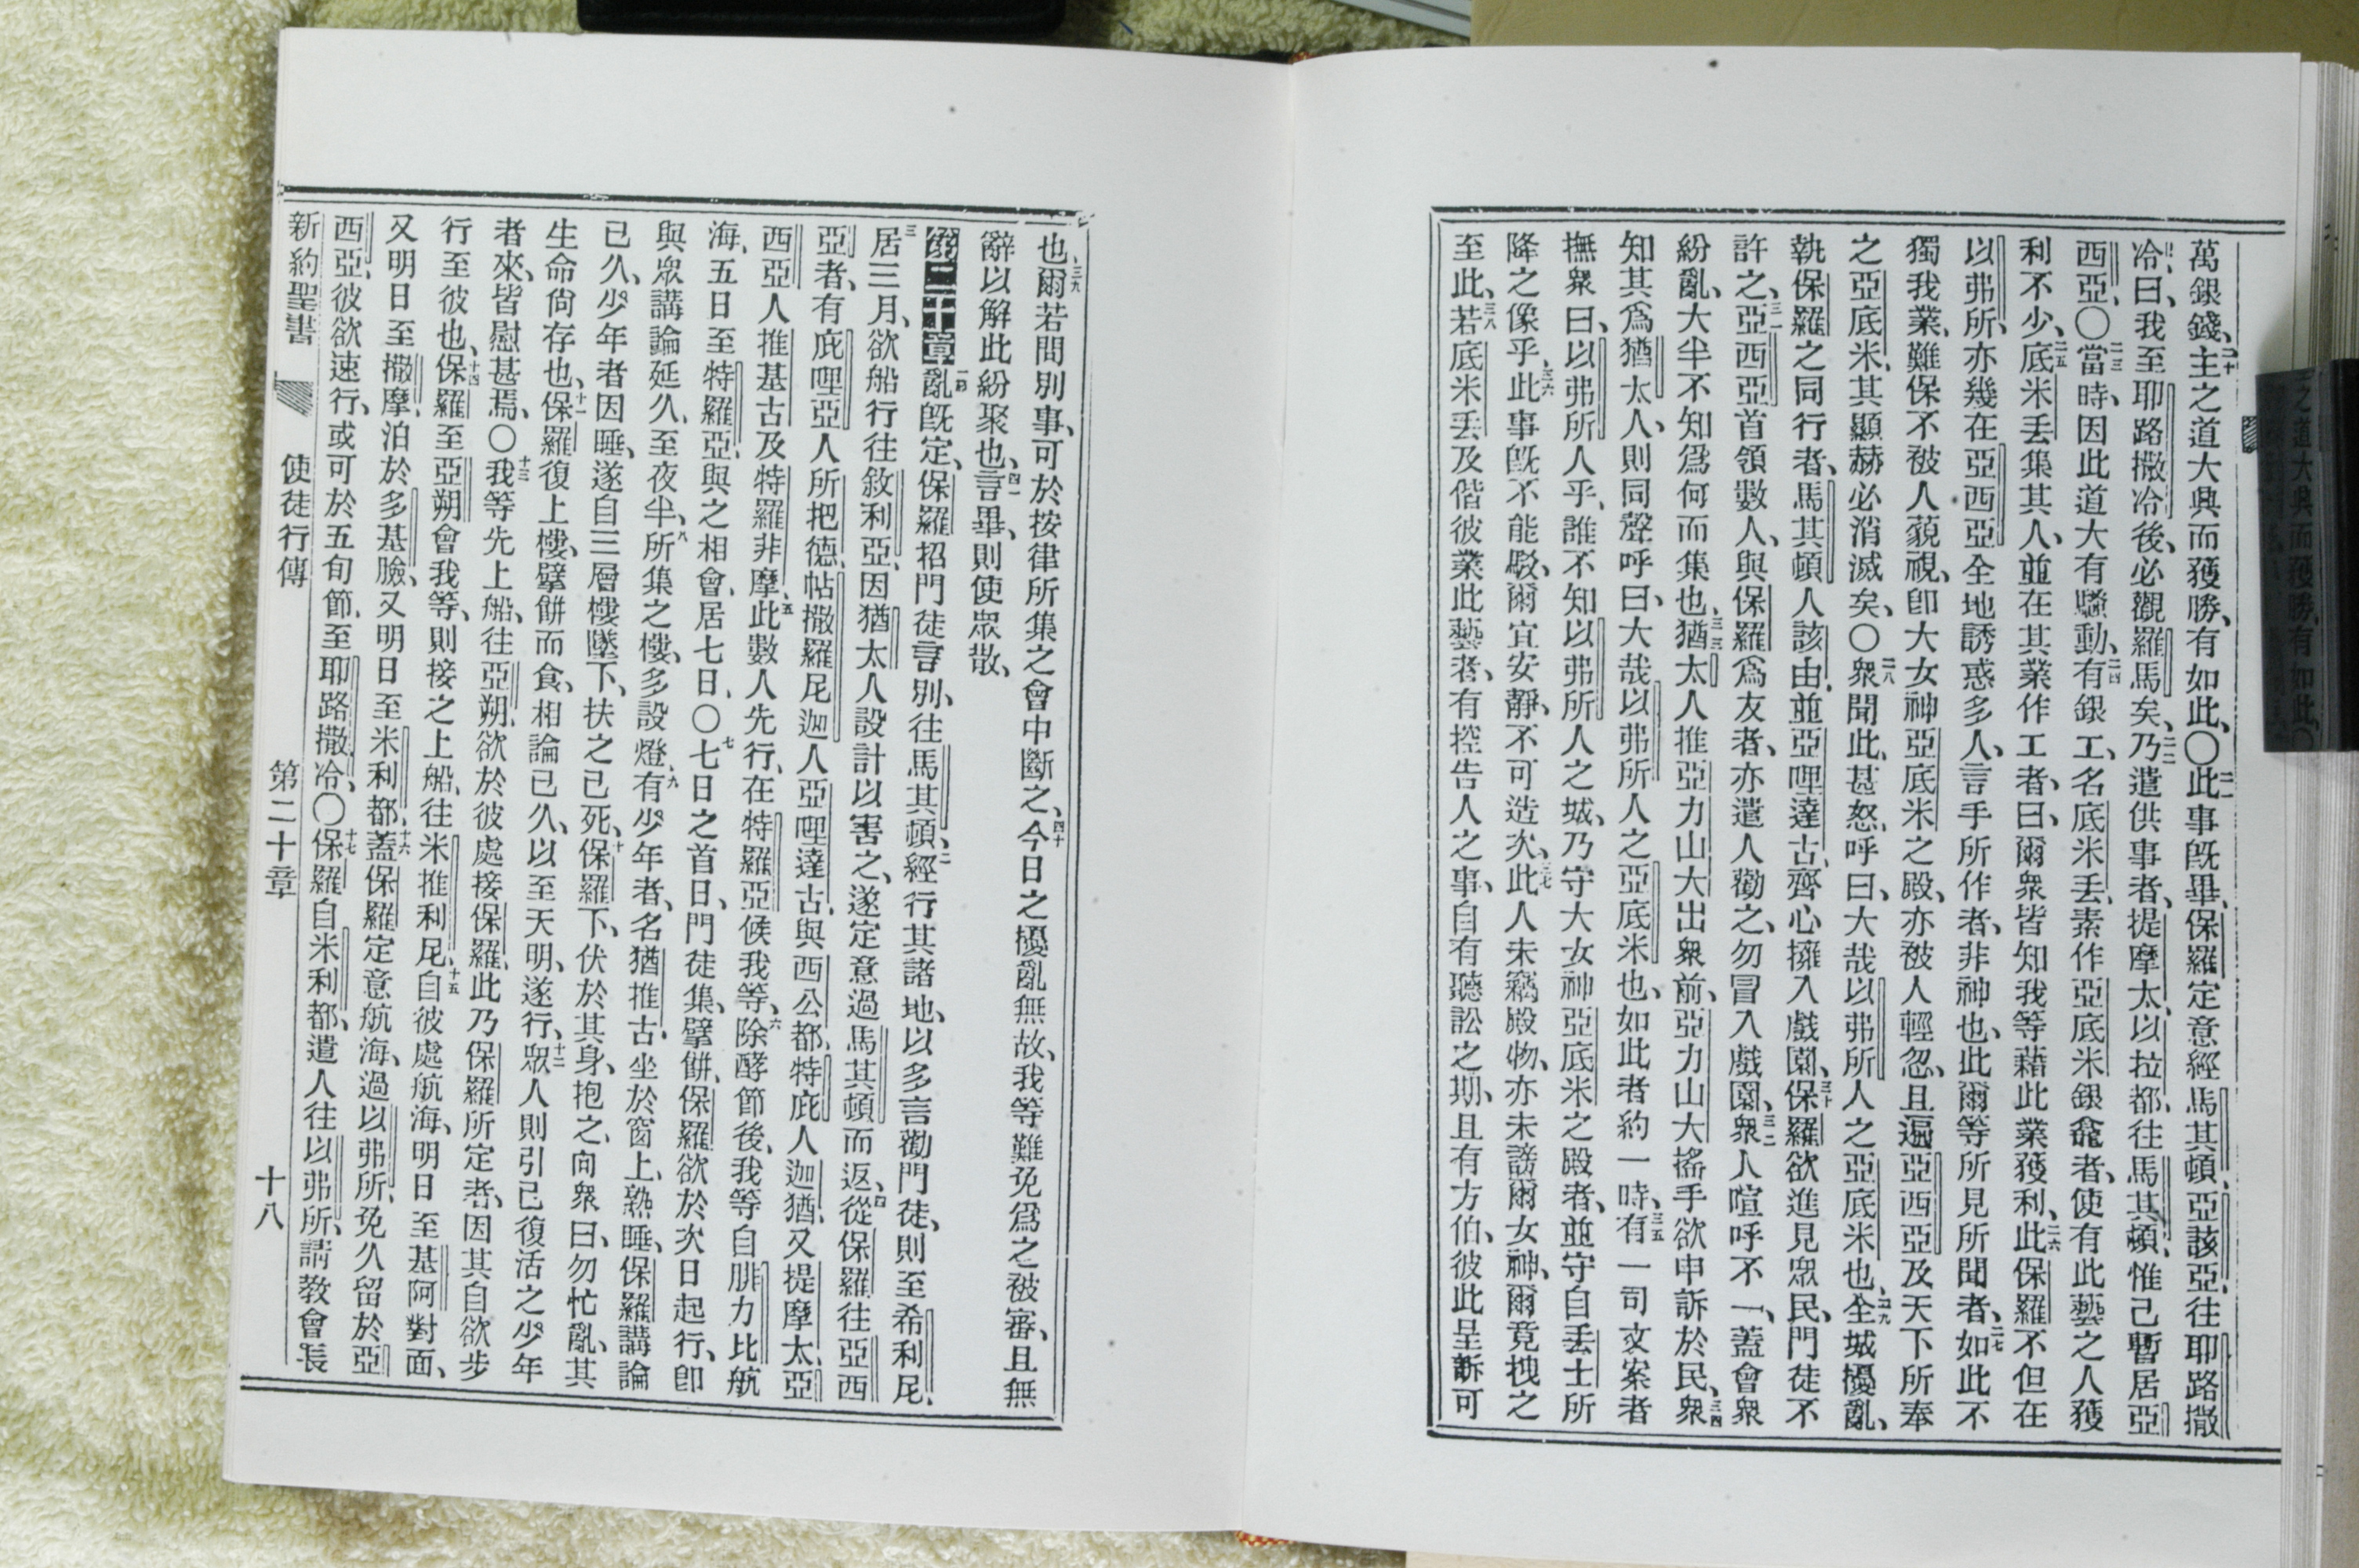 萬銀錢、二十主之道大興而獲勝、有如此、〇二一此事旣畢、保羅定意經馬其頓、亞該亞、往耶路撒
冷、曰、我至耶路撒冷後、必觀羅馬矣、二二乃遣供事者、提摩太、以拉都、往馬其頓、惟己暫居亞
西亞、〇二三當時、因此道大有騷動、二四有銀工、名底米丢、素作亞底米銀龕者、使有此藝之人獲
利不少、二五底米丢集其人、並在其業作工者、曰、爾衆皆知我等藉此業獲利、二六此保羅不但在
以弗所、亦幾在亞西亞全地誘惑多人、言手所作者、非神也、此爾等所見所聞者、二七如此不
獨我業、難保不被人藐視、卽大女神亞底米之殿、亦被人輕忽、且遍亞西亞及天下所奉
之亞底米、其顯赫必消滅矣、〇二八衆聞此、甚怒、呼曰、大哉以弗所人之亞底米也、二九全城擾亂、
執保羅之同行者、馬其頓人該由、並亞哩達古、齊心擁入戲園、三十保羅欲進見眾民、門徒不
許之、三一亞西亞首領數人、與保羅爲友者、亦遣人勸之、勿冒入戲園、三二衆人喧呼不一、蓋會衆
紛亂、大半不知爲何而集也、三三猶太人推亞力山大出衆前、亞力山大搖手欲申訴於民、三四衆
知其爲猶太人、則同聲呼曰、大哉以弗所人之亞底米也、如此者約一時、三五有一司文案者
撫衆曰、以弗所人乎、誰不知以弗所人之城、乃守大女神亞底米之殿者、並守自丢士所
降之像乎、三六此事旣不能駁、爾宜安靜、不可造次、三七此人未竊殿物、亦未謗爾女神、爾竟拽之
至此、三八若底米丢及偕彼業此藝者、有控告人之事、自有聽訟之期、且有方伯、彼此呈訴可
也、三九爾若問別事、可於按律所集之會中斷之、四十今日之擾亂無故、我等難免爲之被審、且無
辭以解此紛聚也、四一言畢、則使眾散、
第二十章一節亂旣定、保羅招門徒言別、往馬其頓、二經行其諸地、以多言勸門徒、則至希利尼、
三居三月、欲船行往敘利亞、因猶太人設計以害之、遂定意過馬其頓而返、四從保羅往亞西
亞者、有庇哩亞人所把德、帖撒羅尼迦人亞哩達古、與西公都、特庇人迦猶、又提摩太、亞
西亞人推基古及特羅非摩、五此數人先行、在特羅亞候我等、六除酵節後、我等自腓力比航
海、五日至特羅亞、與之相會、居七日、〇七七日之首日、門徒集、擘餅、保羅欲於次日起行、卽
與眾講論延久、至夜半、八所集之樓、多設燈、九有少年者、名猶推古、坐於窗上、熟睡、保羅講論
已久、少年者因睡、遂自三層樓墜下、扶之已死、十保羅下、伏於其身、抱之、向衆曰、勿忙亂、其
生命尙存也、十一保羅復上樓、擘餅而食、相論已久、以至天明、遂行、十二眾人則引已復活之少年
者來、皆慰甚焉、〇十三我等先上船、往亞朔、欲於彼處接保羅、此乃保羅所定者、因其自欲步
行至彼也、十四保羅至亞朔會我等、則接之上船、往米推利尼、十五自彼處航海、明日至基阿對面、
又明日至撒摩、泊於多基臉、又明日至米利都、十六蓋保羅定意航海、過以弗所、免久留於亞
西亞、彼欲速行、或可於五旬節、至耶路撒冷、〇十七保羅自米利都、遣人往以弗所、請教會長
新約聖書　使徒行傳　第二十章　十八